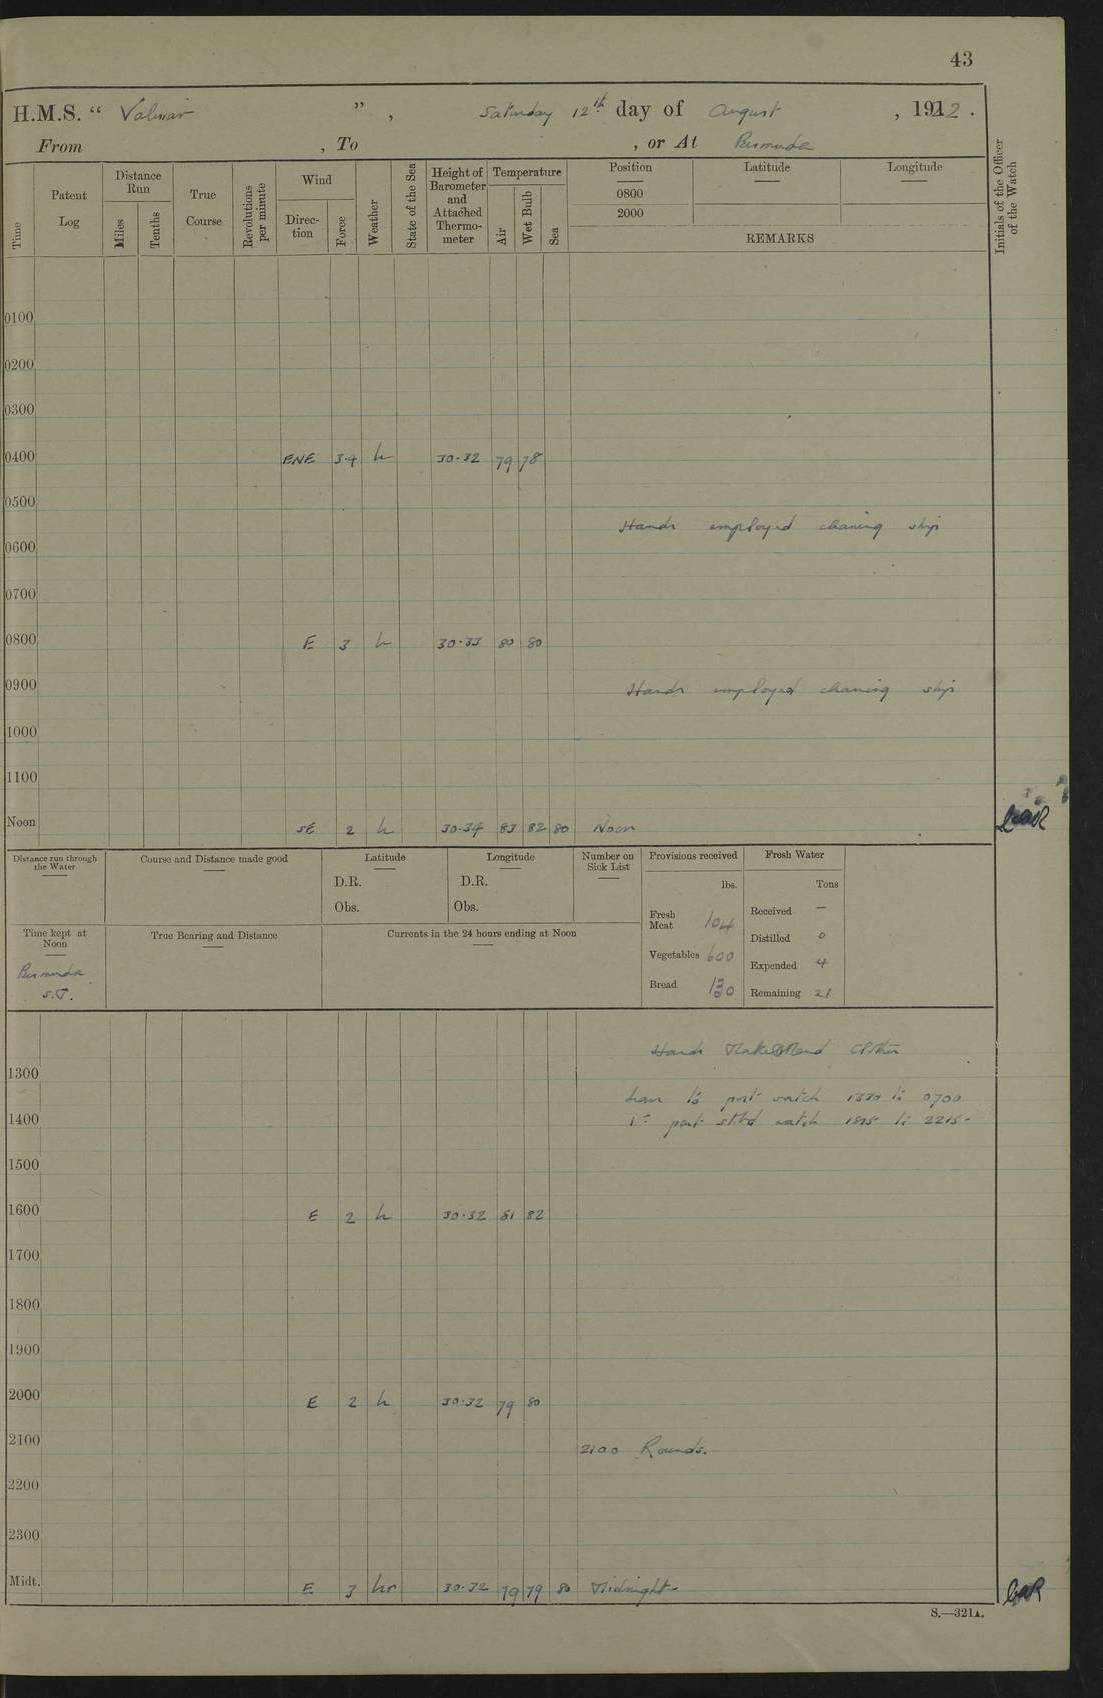 43
H.M.S. “ Valerian ” , Saturday 12th day of August , 1922 .
From , To , or At Bermuda
Time
Patent Log
Distance Run
Miles
Tenths
True Course
Revolutions per minute
Wind
Direc-tion
Force
Weather
State of the Sea
Height of Barometer and Attached Thermo-meter
Temperature
Air
Wet Bulb
Sea
Position
0800
2000
Latitude
Longitude
REMARKS
Initials of the Officer of the Watch
0100
0200
0300
0400 ENE 3-4 h 30·32 79 78
0500
Hands employed cleaning ship
0600
0700
0800 E 3 h 30·33 80 80
0900 Hands employed cleaning ship
1000
1100
Noon SE 2 h 30·34 83 82 80 Noon
Distance run through the Water
Course and Distance made good
Latitude
D.R.
Obs.
Longitude
D.R.
Obs.
Number on Sick List
Provisions received
lbs.
Fresh Meat 104
Vegetables 600
Bread 130
Fresh Water
Tons
Received —
Distilled 0
Expended 4
Remaining 21
Time kept at Noon
Bermuda S.T.
True Bearing and Distance
Currents in the 24 hours ending at Noon
Hands Make & Mend Clothes
1300
Leave to port watch 1330 to 0700
1400 1st part stbd watch 1815 to 2215
1500
1600 E 2 h 30·32 81 82
1700
1800
1900
2000 E 2 h 30·32 79 80
2100 2100 Rounds.
2200
2300
Midt. E 3 hr 30·32 79 79 80 Midnight
S.—321A.